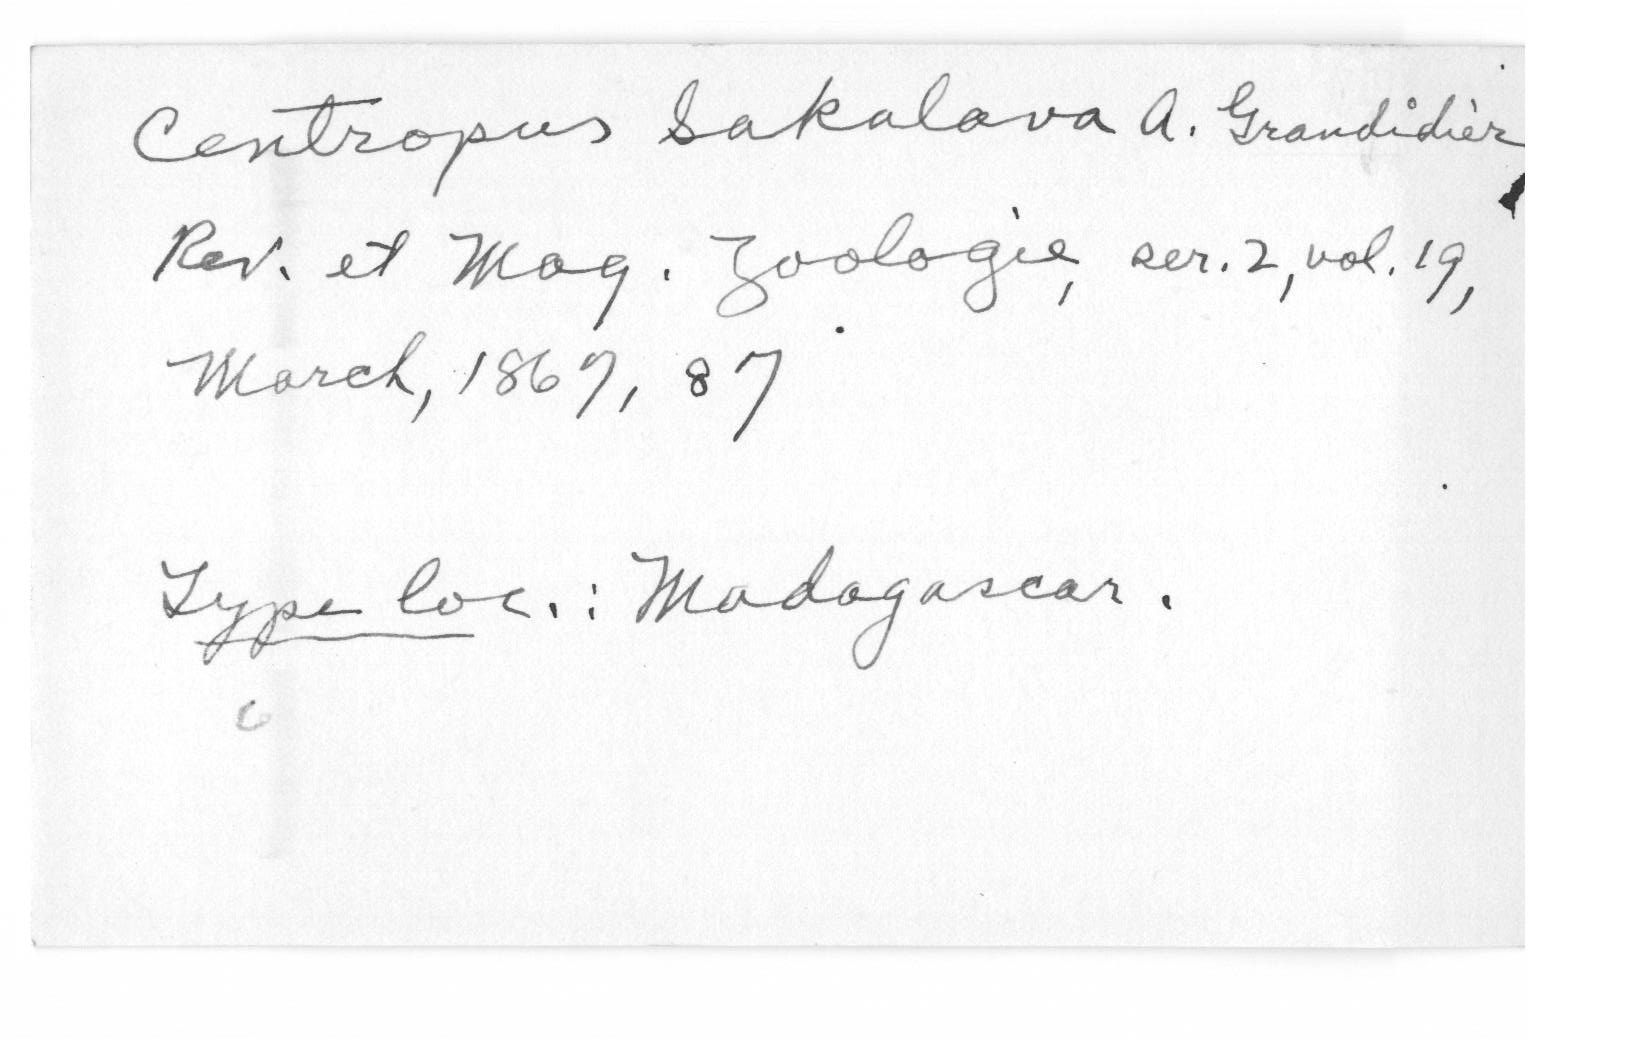 Centropus Sakalava A. Grandidier
Rev. et Mag. Zoologie, ser. 2, vol. 19,
March, 1867, 87
Type loc.: Madagascar.